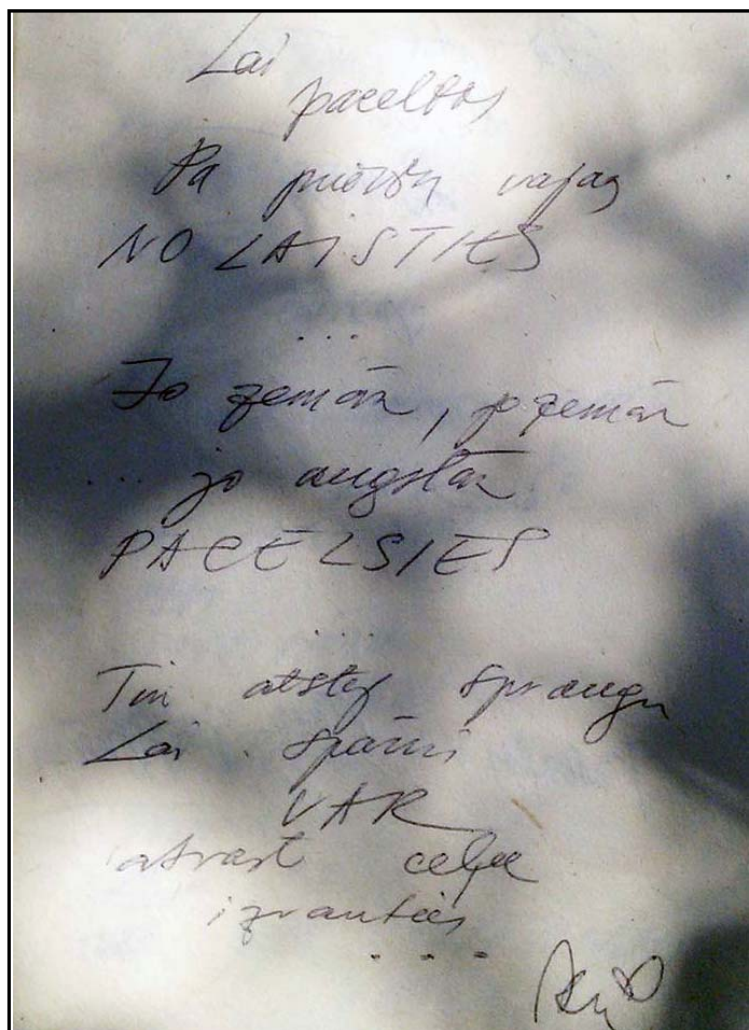 Lai
paceltos
Pa vajag
NO LAISTIES
...
Jo zemāk, jo zemāk
... jo augstāk
PACELSIES
...
atstāj spraugu
Lai spārni
VAR
atrast ceļu
izrauties
...